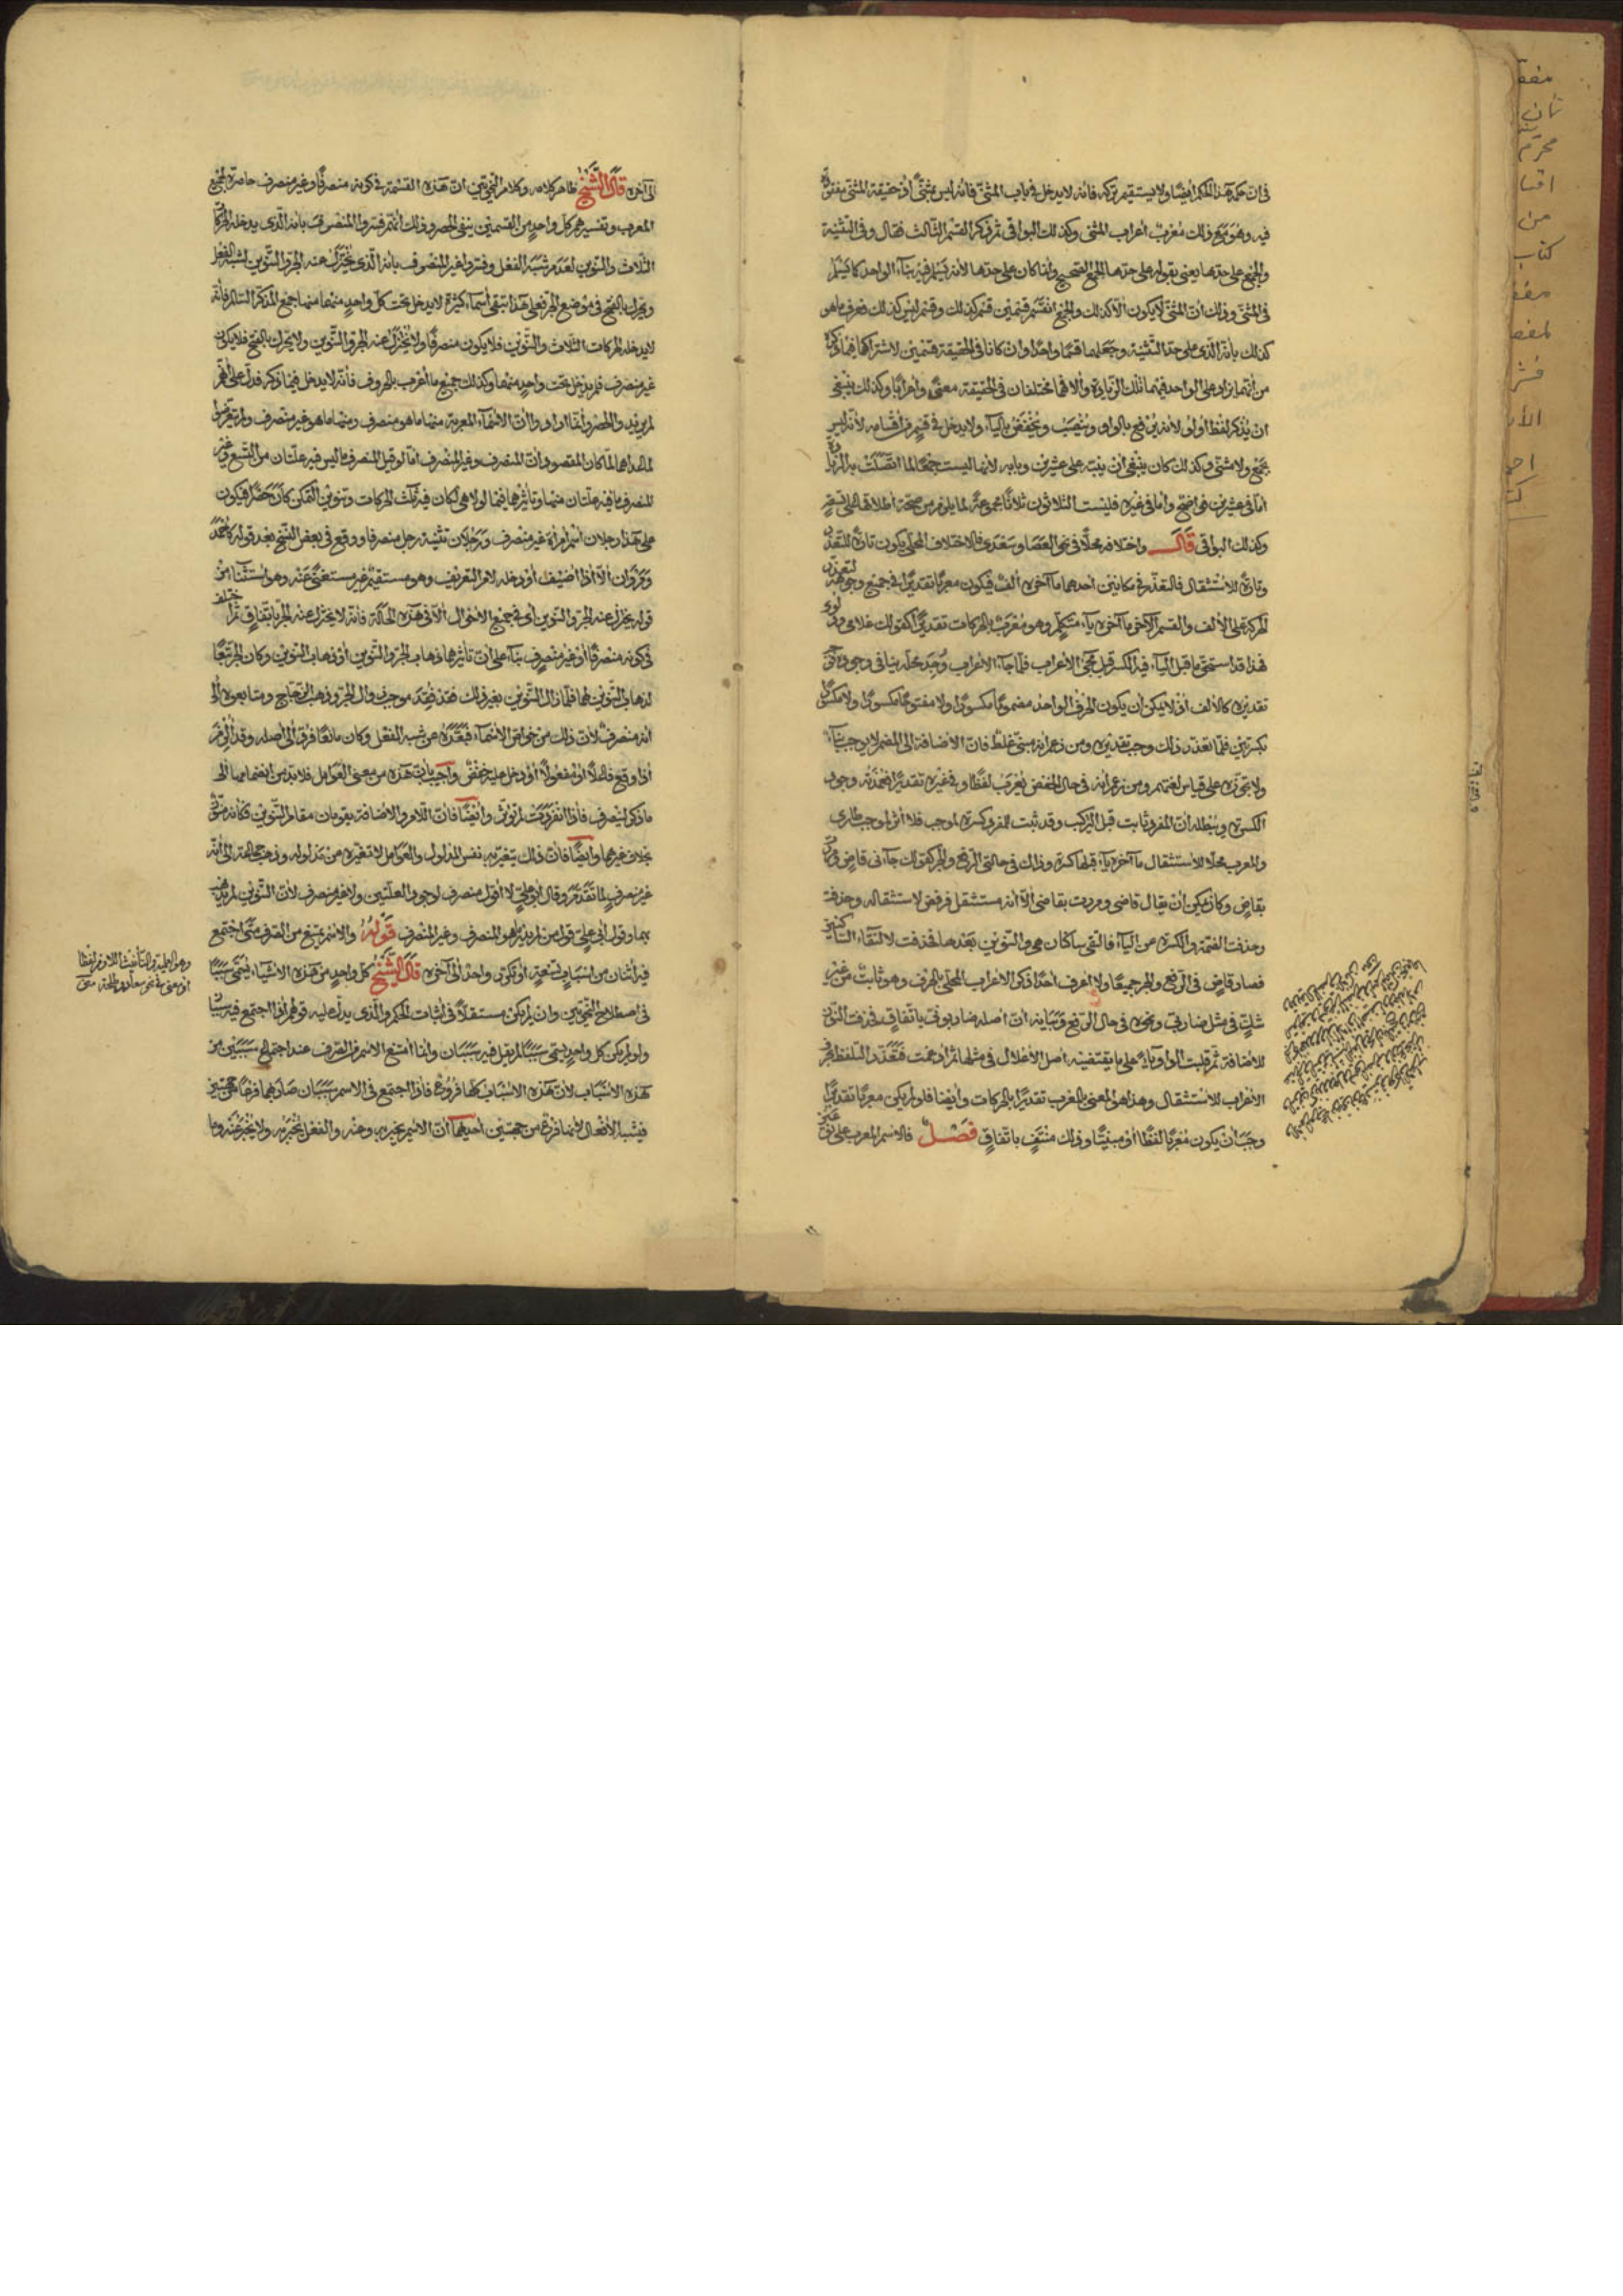 في ان حكمه هذا الحكم ايضا ولا يستقيم تركه فانه لا يدخل في باب المثنى فانه ليس بمثنى اذ حقيقة المثنى مفقودة
فيه وهو مع ذلك معرب اعراب المثنى وكذلك البواقي ثم ذكر القسم الثالث فقال وفي التثنية
والجمع على حدها يعني بقوله على حدها الجمع الصحيح وانما كان على حدها لانه يسلم فيه بناء الواحد كما يسلم
في المثنى وذلك ان المثنى لا يكون الا كذلك والجمع انقسم قسمين قسم كذلك وقسم ليس كذلك فعرف ما هو
كذلك بانه الذي على حد التثنية وجعلهما قسما واحدا وان كانا في الحقيقة قسمين لاشتراكهما فيما ذكرناه
من انهما يزاد على الواحد فيهما تلك الزيادة والا فهما مختلفان في الحقيقة معنى واعرابا وكذلك ينبغي
ان يذكر لفظ اولو لانه يرفع بالواو وينصب ويخفض بالياء ولا يدخل في قسم من اقسامه لانه ليس
بجمع ولا مثنى وكذلك كان ينبغي ان ينبه على عشرين وبابه لانها ليست جمعا لما اتصلت به الزيادة
اما في عشرين فواضح واما في غيره فليست الثلاثون ثلاثا مجموعة لما يلزم من صحة اطلاقها على تسعة
وكذلك البواقي قال واختلافه محلا في نحو العصا وسعدى فالاختلاف المحلي يكون تارة للتعذر
وتارة للاستثقال فالتعذر في مكانين احدهما ما آخره الف فيكون معربا تقديرا في جميع وجوهه لتعذر
الحركة على الالف والقسم الآخر ما آخره ياء متكلم وهو معرب بالحركات تقديرا كقولك غلامي ودلوي
فهذا قد استحق ما قبل الياء فيه الكسر قبل مجيء الاعراب فلما جاء الاعراب وجد محله
تقديره كالالف اذ لا يمكن ان يكون الحرف الواحد مضموما مكسورا ولا مفتوحا مكسورا ولا مكسورا
بكسرتين فلما تعذر ذلك وجب تقديره ومن زعم انه مبني غلط فان الاضافة الى المضمر لا توجب بناء
ولا تجوزه على قياس لغتهم ومن زعم انه في حال الخفض يعرب لفظا وفي غيره تقديرا فعمدته وجود
الكسرة ويبطله ان المفرد ثابت قبل التركيب وقد ثبت للمفرد كسرة لموجب فلا اثر لموجب طارئ
والمعرب محلا للاستثقال ما آخره ياء قبلها كسرة وذلك في حالتي الرفع والجر كقولك جاءني قاض ومررت
بقاض وكان يمكن ان يقال قاضي ومررت بقاضي الا انه مستثقل فرفض لاستثقاله وحذفه
وحذفت الضمة والكسرة من الياء فالتقى ساكنان هي والتنوين بعدها فحذفت لالتقاء الساكنين
فصار قاض في الرفع والجر جميعا ولا اعرف احدا ذكر الاعراب المحلي بالحرف وهو ثابت من غير
شك في مثل ضاربي ونحوه في حال الرفع وبيانه ان اصله ضاربوني باتفاق فحذفت النون
للاضافة ثم قلبت الواو ياء على ما يقتضيه اصل الاعلال في مثلها ثم ادغمت فتعذر التلفظ بحرف
الاعراب للاستثقال وهذا هو المعني بالمعرب تقديرا بالحركات وايضا فلو لم يكن معربا تقديرا
وجب ان يكون معربا لفظا او مبنيا وذلك منتف باتفاق فصل فالاسم المعرب على نوعين
الى آخره قال الشيخ ظاهر كلامه وكلام النحويين ان هذه القسمة في كونه منصرفا وغير منصرف حاصرة لجميع
المعرب وتفسيرهم كل واحد من القسمين ينفي الحصر وذلك انهم فسروا المنصرف بانه الذي يدخله الحركات
الثلاث والتنوين لعدم شبه الفعل وفسروا غير المنصرف بانه الذي يختزل عنه الجر والتنوين لشبه الفعل
ويحرك بالفتح في موضع الجر فعلى هذا تبقى اسماء كثيرة لا يدخل تحت كل واحد منهما منها جمع المذكر السالم فانه
لا يدخله الحركات الثلاث والتنوين فلا يكون منصرفا ولا يختزل عنه الجر والتنوين ولا يحرك بالفتح فلا يكون
غير منصرف فلم يدخل تحت واحد منهما وكذلك جميع ما اعرب بالحروف فانه لا يدخل فيما ذكره فدل على انهم
لم يريدوا الحصر وانما ارادوا ان الاسماء المعربة منها ما هو منصرف ومنها ما هو غير منصرف ولم يتعرضوا
لما عداهما لما كان المقصود ان المنصرف وغير المنصرف اما لو قيل المنصرف ما ليس فيه علتان من التسع وغير
المنصرف ما فيه علتان منها وتأثيرها فيما لولا هي لكان فيه ثلث الحركات وتنوين التمكن كان حصرا فيكون
على هذا رجلان اسم امراة غير منصرف ورجلان تثنية رجل منصرفا ووقع في بعض النسخ بعد قوله كاحمد
ومروان الا اذا اضيف او دخله لام التعريف وهو مستقيم غير مستغنى عنه وهو استثناء من
قوله يختزل عنه الجر والتنوين اي في جميع الاحوال الا في هذه الحالة فانه لا يختزل عنه الجر باتفاق ثم اختلف
في كونه منصرفا او غير منصرف بناء على ان تاثيرها ذهاب الجر والتنوين او ذهاب التنوين وكان الجر تبعا
لذهاب التنوين فلما زال التنوين بغير ذلك فقد فقد موجب زوال الجر وذهب الزجاج ومتابعوه الى
انه منصرف لان ذلك من خواص الاسماء فبعده عن شبه الفعل وكان مانعا فرق الى اصله وقد الزم
اذا وقع فاعلا او مفعولا او دخل عليه خفض واجيب بان هذه من معنى العوامل فلا بد من انضمامها الى
ما ذكر لينصرف فاذا انفردت لم تؤثر وايضا فان اللام والاضافة يقومان مقام التنوين فكانه منون
بخلاف غيرها وايضا فان ذلك يتغير به نفس المدلول والعوامل لا تغيره من مدلوله وذهب جماعة الى انه
غير منصرف لما تقدم وقال ابو علي لا اقول منصرف لوجود العلتين ولا غير منصرف لان التنوين لم يذهب
بهما وقول ابي علي قول من لم يدر ما هو المنصرف وغير المنصرف قوله والاسم يمتنع من الصرف متى اجتمع
فيه اثنان من اسباب تسعة او تكرر واحد الى آخره قال الشيخ كل واحد من هذه الاشياء يسمى سببا
في اصطلاح النحويين وان لم يكن مستقلا في اثبات الحكم والذي يدل عليه قولهم اذا اجتمع فيه سببان
ولو لم يكن كل واحد يسمى سببا لم يقل فيه سببان وانما امتنع الاسم من الصرف عند اجتماع سببين من
هذه الاسباب لان هذه الاسباب كلها فروع فاذا اجتمع في الاسم سببان صار بهما فرعا من جهتين
فيشبه الافعال لانها فرع من جهتين احديهما ان الاسم يخبر به وعنه والفعل يخبر به ولا يخبر عنه وما
وهو العلمية والتأنيث اللازم لفظا
او معنى في نحو سعاد وطلحة